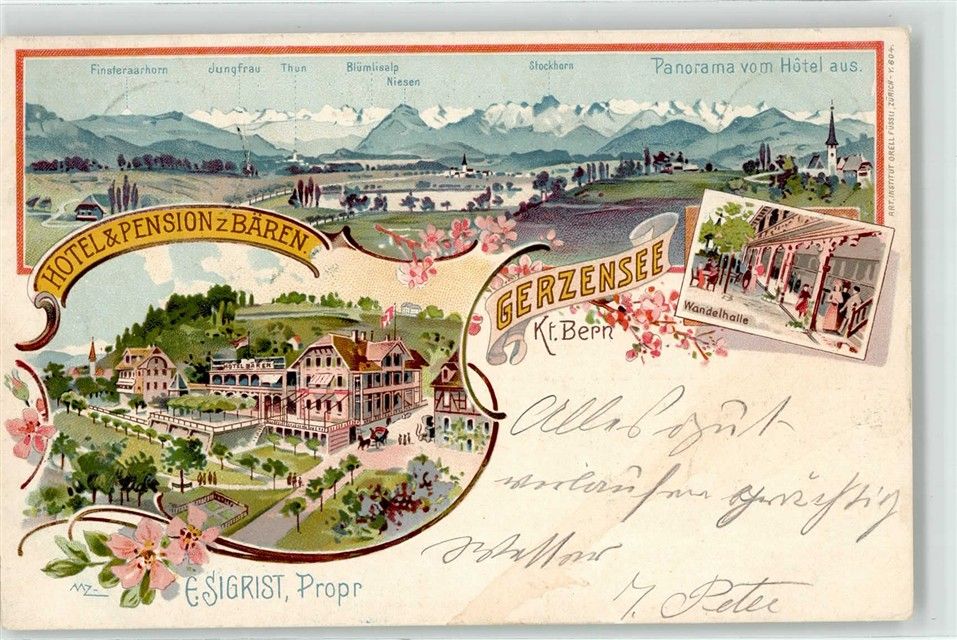 Finsteraarhorn Jungfrau Thun Blümlisalp Stockhorn Panorama vom Hôtel aus.
Niesen
ART. INSTITUT ORELL FÜSSLI ZÜRICH - Y. 604.
HOTEL & PENSION Z BÄREN.
GERZENSEE
Kt. Bern
Wandelhalle
HOTEL BÄREN
Alles gut
verlaufen prächtig
Wetter
J. Peter
MZ
E. SIGRIST, Propr